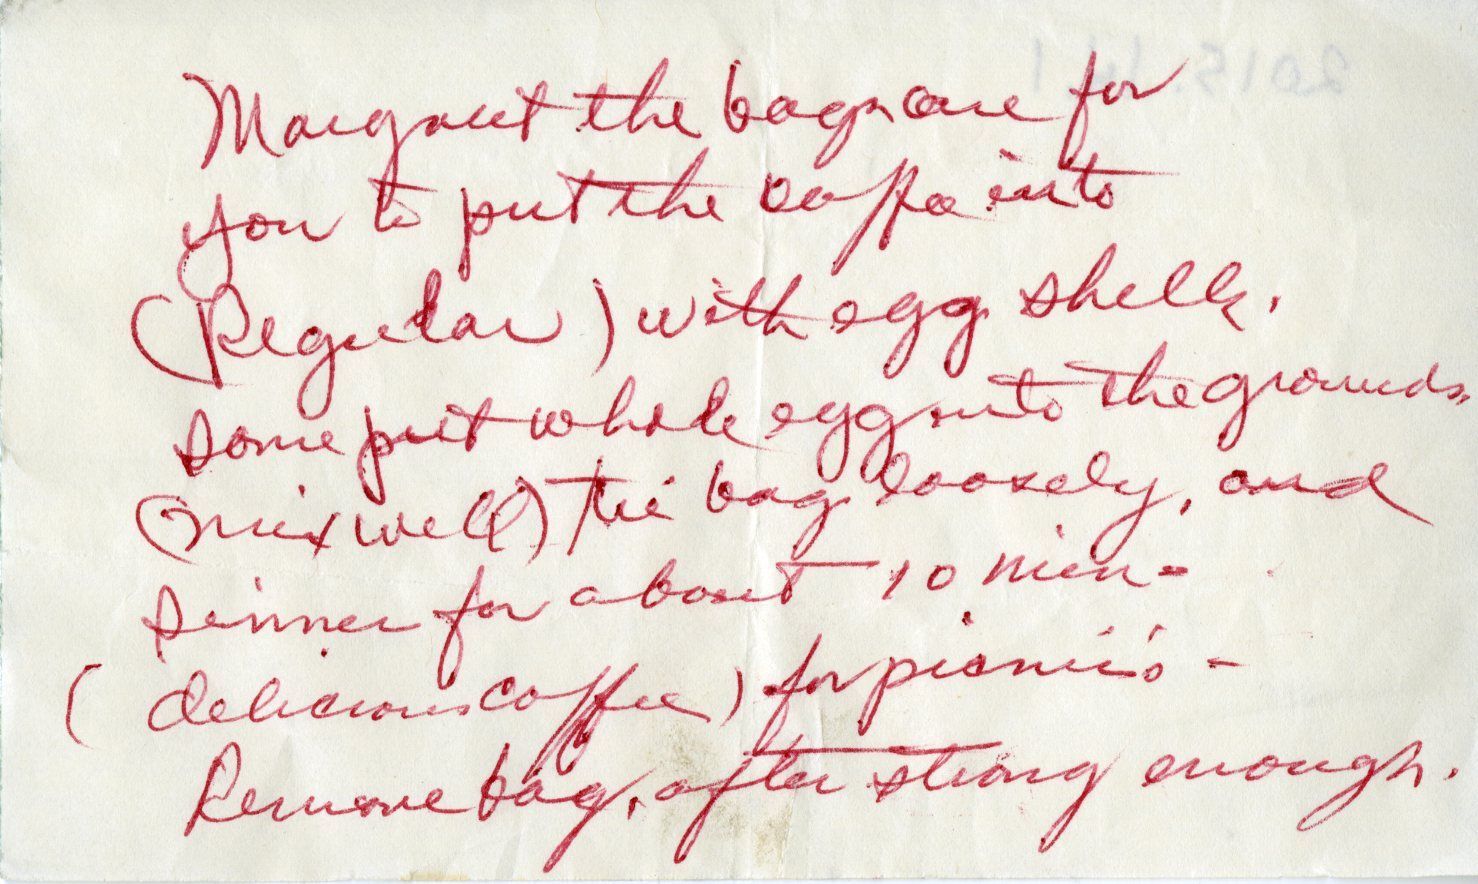 Margaret the bags are for
you to put the coffee into
(Regular) with egg shells.
some put whole egg into the grounds,
(mix well) tie bag loosely, and
simmer for about 10 min-
(delicious coffee) for picnics -
Remove bag, after strong enough.
2015.141